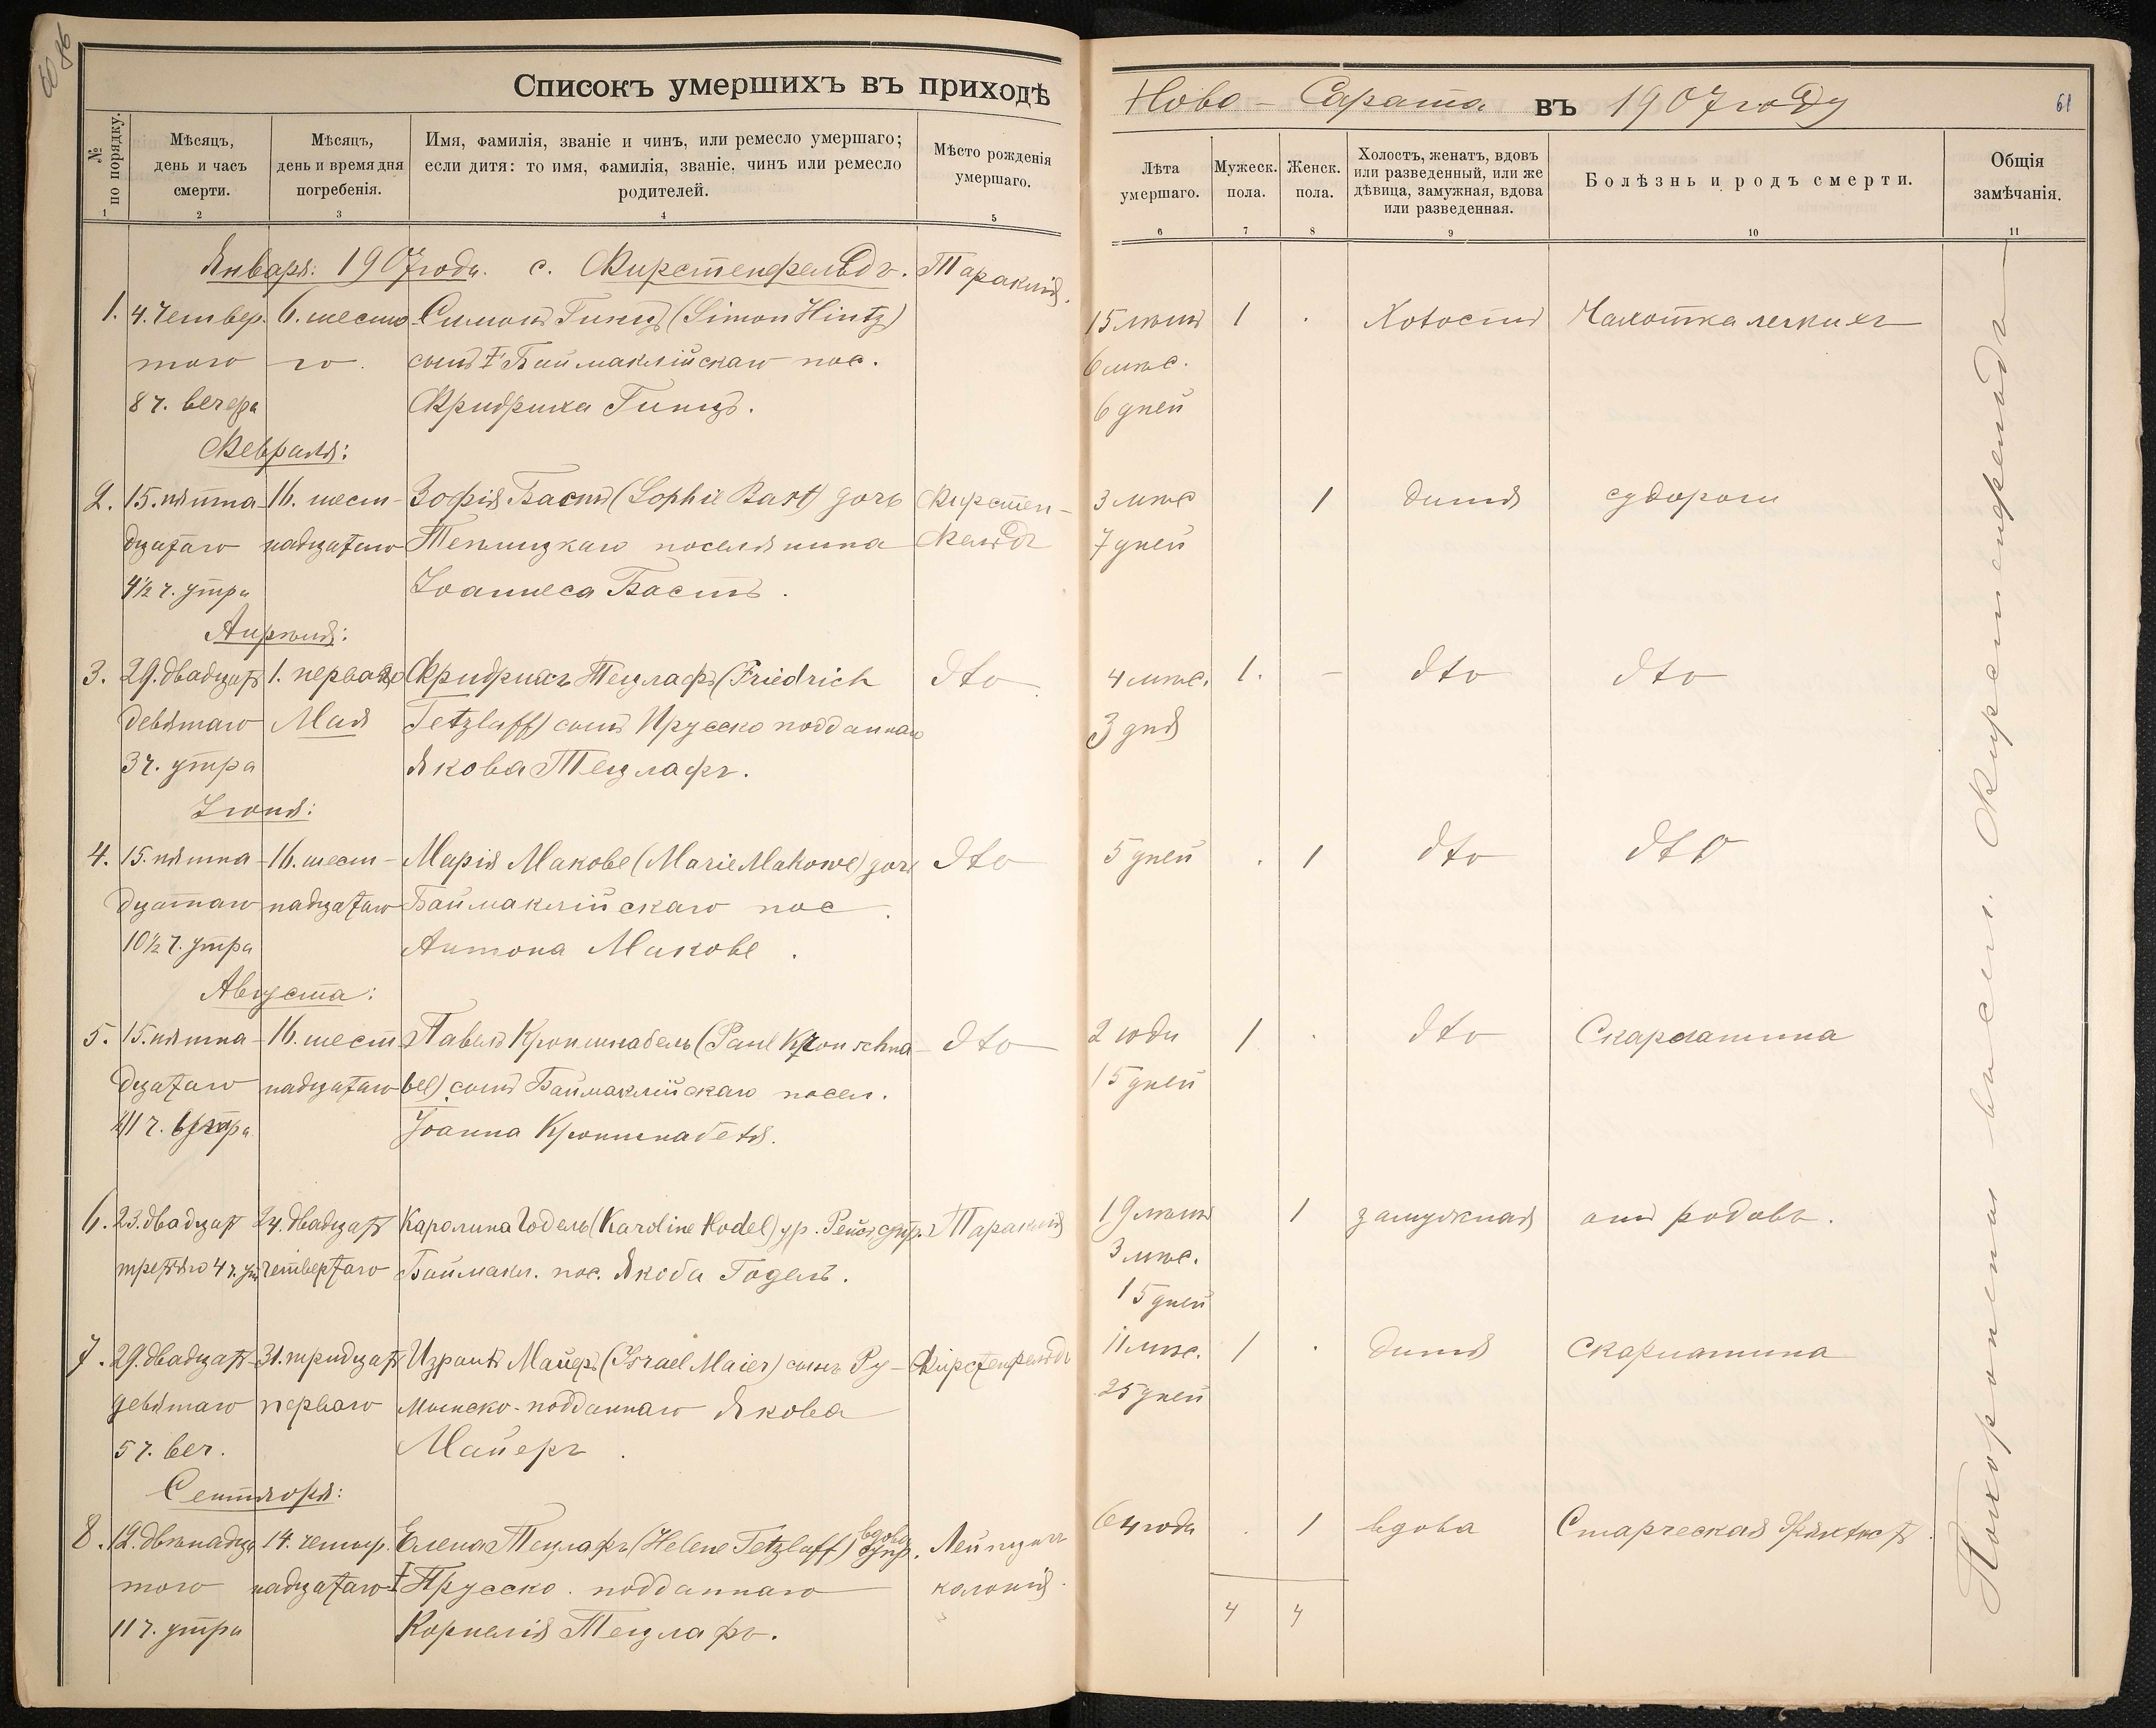 Списокъ умершихъ въ приходѣ Ново-Сарата въ 1907 году
61
№ по порядку.
Мѣсяцъ, день и часъ смерти.
Мѣсяцъ, день и время дня погребенія.
Имя, фамилія, званіе и чинъ, или ремесло умершаго; если дитя: то имя, фамилія, званіе, чинъ или ремесло родителей.
Мѣсто рожденія умершаго.
Лѣта умершаго.
Мужеск. пола.
Женск. пола.
Холостъ, женатъ, вдовъ или разведенный, или же дѣвица, замужная, вдова или разведенная.
Болѣзнь и родъ смерти.
Общія замѣчанія.
1 2 3 4 5 6 7 8 9 10 11
Января: 1907 года. с. Фирстенфельдъ. Тараклія.
1. 4. Четвер- 6. шесто- Симонъ Гинцъ (Simon Hintz) 15 лѣтъ 1 . Холостъ Чахотка легкихъ
того го. сынъ † Баймаклійскаго пос. 6 мѣс.
8 ч. вечера Фридриха Гинцъ. 6 дней
Февраля:
2. 15. пятна- 16. шест- Зофія Бастъ (Sophie Bast) дочь Фирстен- 3 мѣс 1 дитя судороги
дцатаго надцатаго Теплицкаго поселянина фельдъ 7 дней
4½ ч. утра Іоаннеса Бастъ.
Апрѣля:
3. 29. двадцат 1. перваго Фридрихъ Тецлафъ (Friedrich dto 4 мѣс. 1. - dto dto
девятаго Мая Tetzlaff) сынъ Прусско подданнаго 3 дня
3 ч. утра Якова Тецлафъ.
Іюня:
4. 15. пятна- 16. шест- Марія Макове (Marie Makowe) дочь dto 5 дней . 1 dto dto
дцатаго надцатаго Баймаклійскаго пос.
10½ ч. утра Антона Макове.
Августа:
5. 15. пятна- 16. шест- Павелъ Кроншнабель (Paul Kronschna- dto 2 года 1 . dto Скарлатина
дцатаго надцатаго bel) сынъ Баймаклійскаго посел. 15 дней
11 ч. утра Іоанна Кроншнабеля.
6. 23. двадцат 24. двадцат Каролина Годель (Karoline Hodel) ур. Тараклія 19 лѣтъ 1 замужная отъ родовъ.
третьяго 4 ч. ут четвертаго Баймакл. пос. Якоба Годель. 3 мѣс.
15 дней
7. 29. двадцат- 31. тридцат Израилъ Майеръ (Israel Maier) сынъ Ру- Фирстенфельдъ 11 мѣс. 1 . дитя скарлатина
девятаго перваго мынско-подданнаго Якова 25 дней
5 ч. веч. Майеръ.
Сентября:
8. 12. двѣнадца 14. четыр- Елена Тецлафъ (Helene Tetzlaff) вдова Лейпцигъ 64 года . 1 вдова Старческая
того надцатаго † Прусско-подданнаго колонія.
11 ч. утра Корнелія Тецлафъ.
4 4
Похоронены въ сел. Фирстенфельдъ